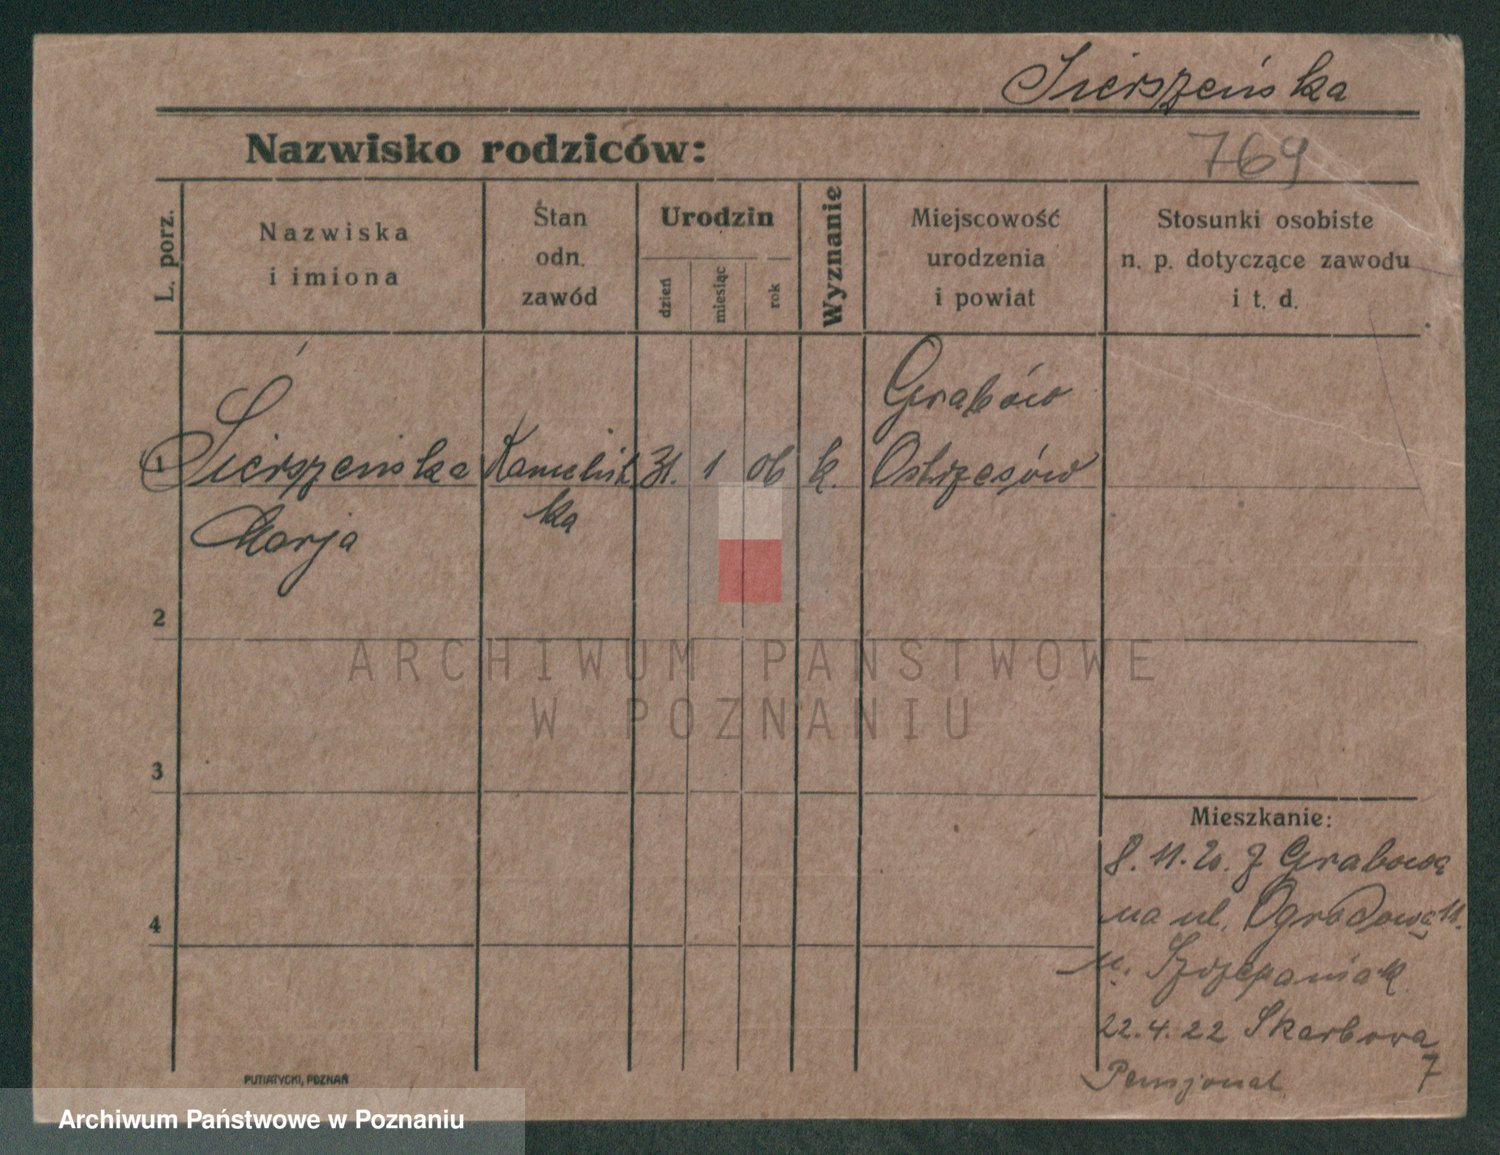 Sierszeńska
Nazwisko rodziców:
769
L. porz.
Nazwiska
i imiona
Stan
odn.
zawód
Urodzin
dzień
miesiąc
rok
Wyznanie
Miejscowość
urodzenia
i powiat
Stosunki osobiste
n. p. dotyczące zawodu
i t. d.
Grabów
1 Sierszeńska 31. 1 06 k. Ostrzeszów
ka
Marja
2
ARCHIWUM PAŃSTWOWE
W POZNANIU
3
Mieszkanie:
8. 11. 20. z Grabowa
4
na ul. Ogrodową 11.
u. Szczepaniak
22.4.22 Skarbowa
7
Pensjonat
PUTIATYCKI, POZNAŃ
Archiwum Państwowe w Poznaniu